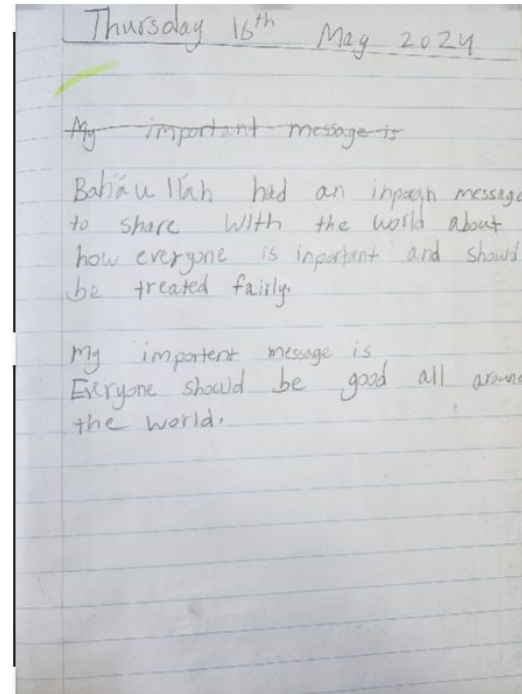 Thursday 16th May 2024
My important message is
Bahá'u'lláh had an inpoagh message
to share with the world about
how everyone is inportent and should
be treated fairly.
My importent message is
Everyone should be good all around
the world.